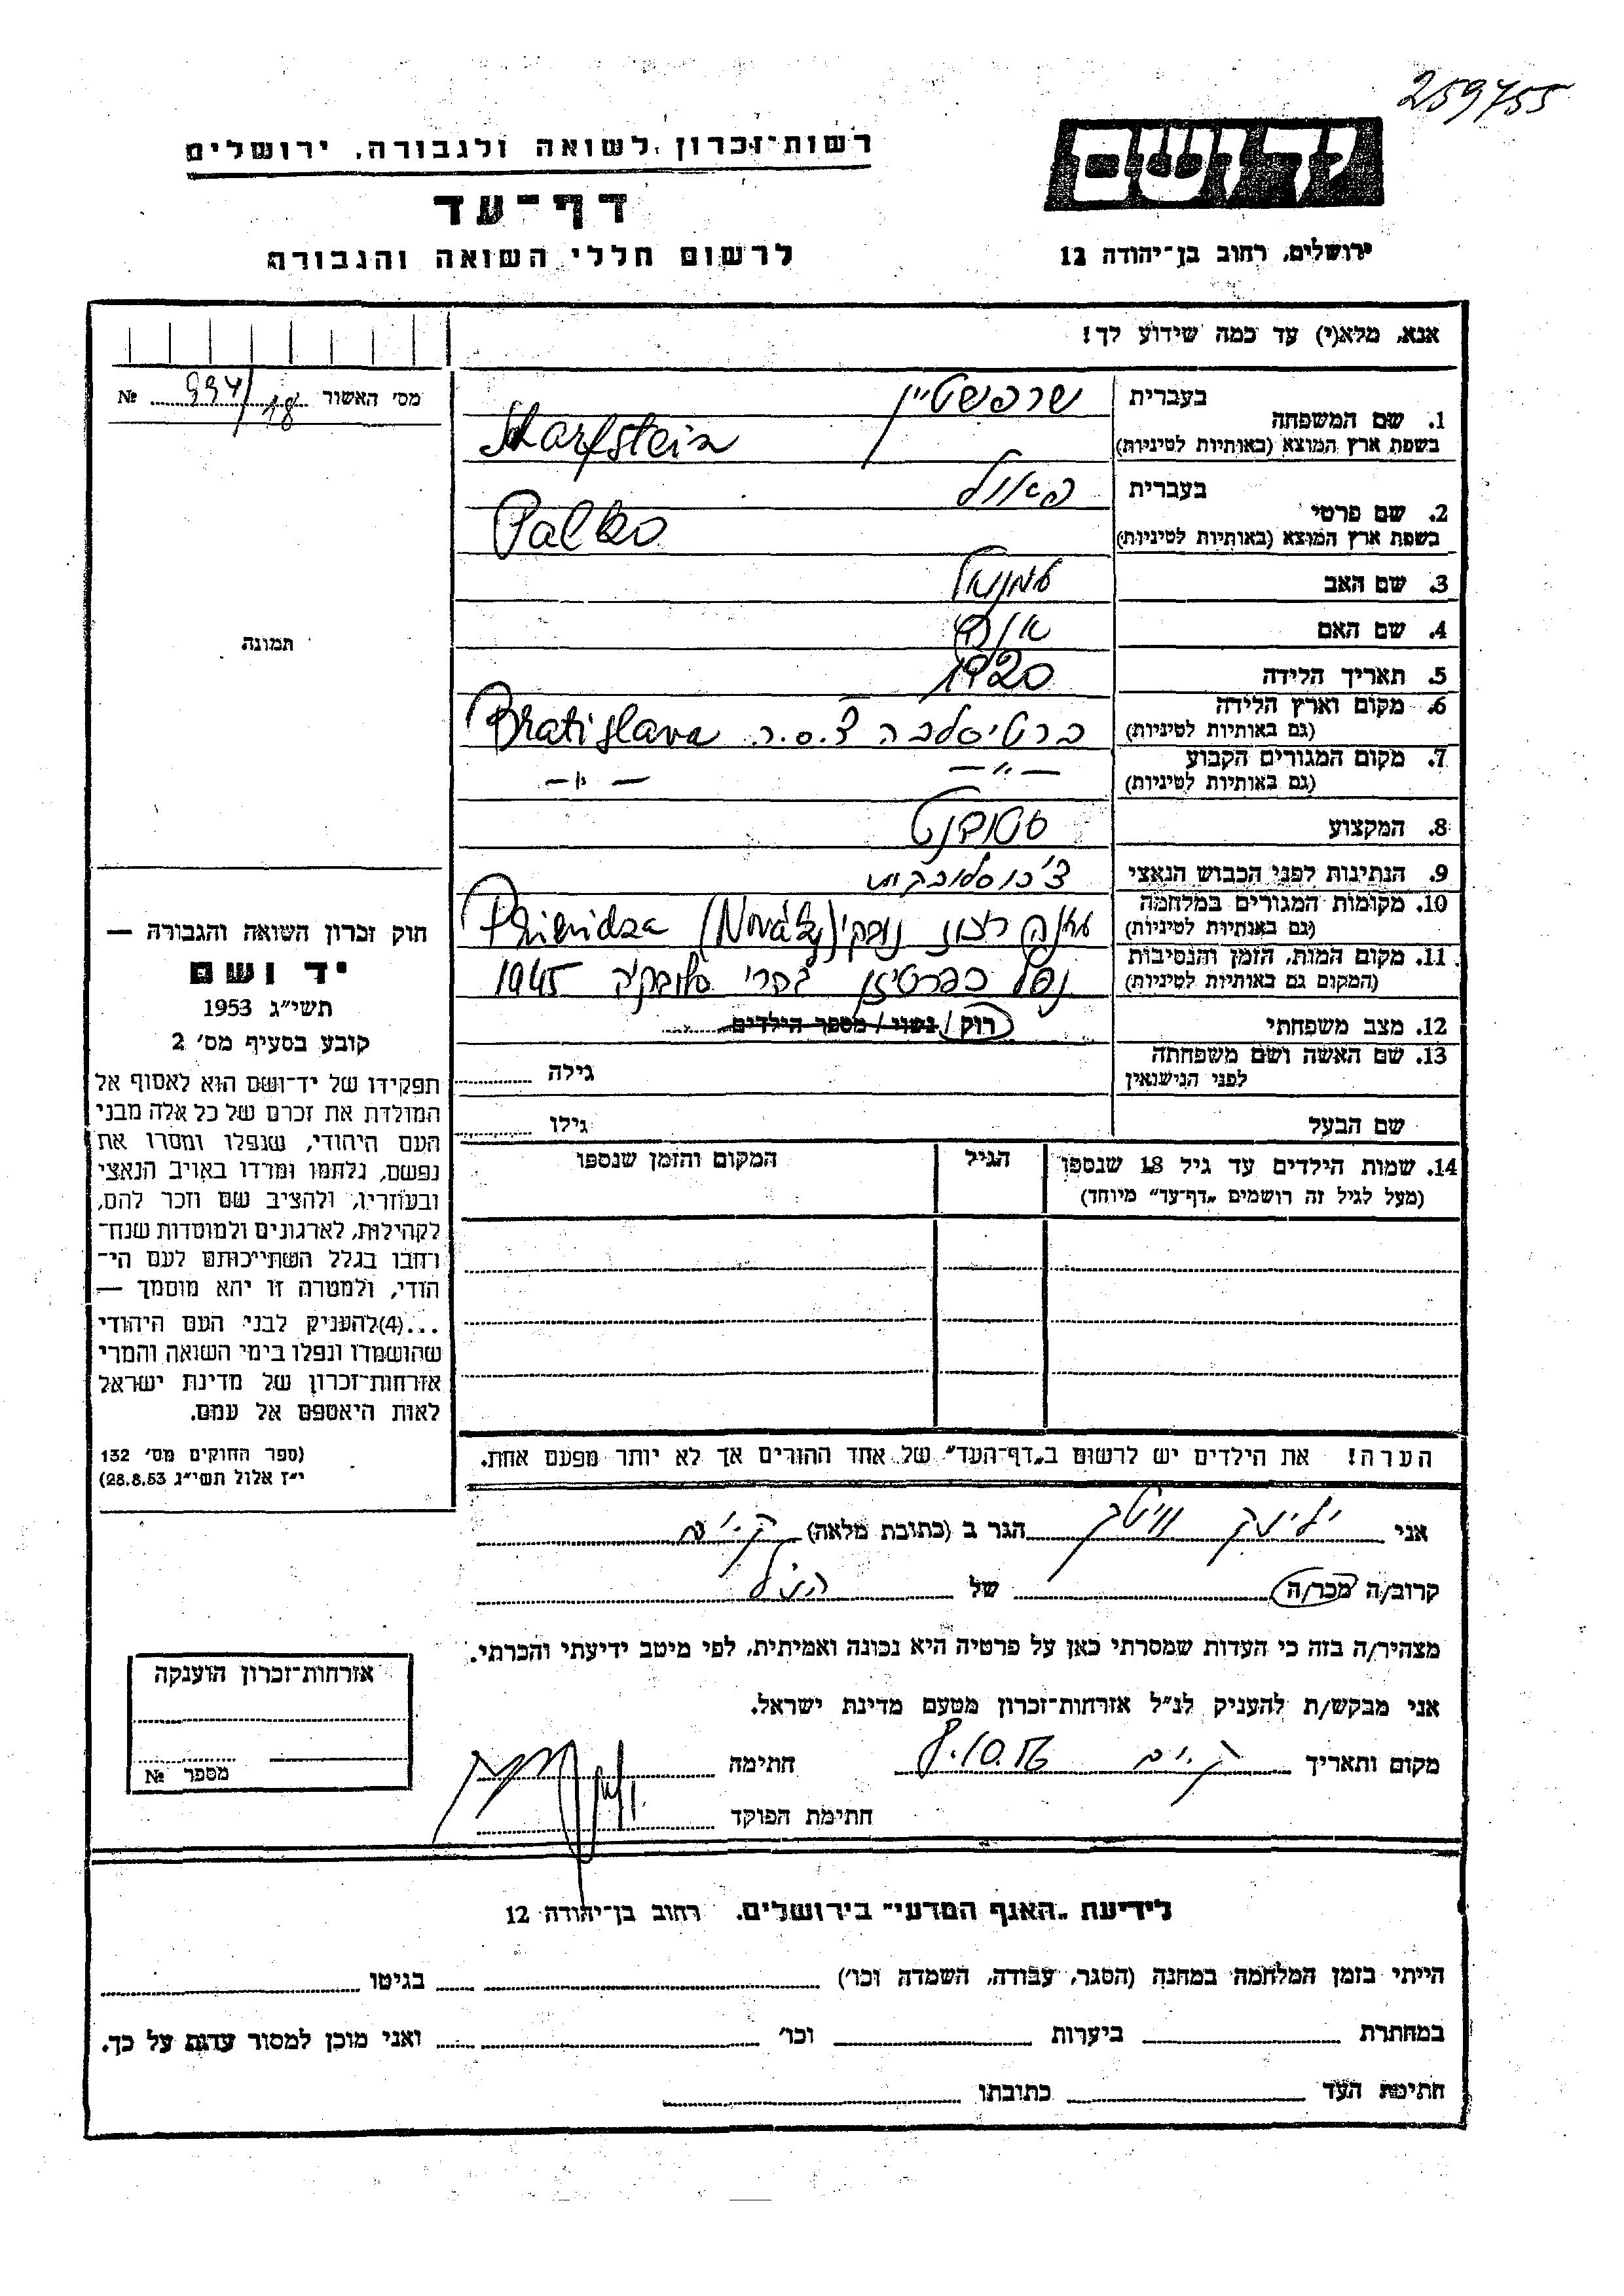 259755
יד ושם
רשות־זכרון לשואה ולגבורה, ירושלים
דף־עד
לרשום חללי השואה והגבורה
ירושלים, רחוב בן־יהודה 12
אנא, מלא(י) עד כמה שידוע לך!
מס׳ האשור 994/18 №
תמונה
בעברית שרפשטיין
1. שם המשפחה
בשפת ארץ המוצא (באותיות לטיניות) Sharfstein
בעברית פאול
2. שם פרטי
בשפת ארץ המוצא (באותיות לטיניות) Palko
3. שם האב עמנואל
4. שם האם
5. תאריך הלידה 1920
6. מקום וארץ הלידה ברטיסלבה צ.ס.ר. Bratislava
(גם באותיות לטיניות)
7. מקום המגורים הקבוע —״— —״—
(גם באותיות לטיניות)
8. המקצוע סטודנט
9. הנתינות לפני הכבוש הנאצי צ׳כוסלובקית
10. מקומות המגורים במלחמה מחנה נובקי (Nováky)
(גם באותיות לטיניות)
11. מקום המות, הזמן והנסיבות נפל כפרטיזן בהרי סלובקיה 1945
(המקום גם באותיות לטיניות)
12. מצב משפחתי רוק / נשוי / מספר הילדים
13. שם האשה ושם משפחתה גילה
לפני הנישואין
שם הבעל גילו
14. שמות הילדים עד גיל 18 שנספו הגיל המקום והזמן שנספו
(מעל לגיל זה רושמים „דף־עד״ מיוחד)
הערה! את הילדים יש לרשום ב„דף־העד״ של אחד ההורים אך לא יותר מפעם אחת.
חוק זכרון השואה והגבורה —
יד ושם
תשי״ג 1953
קובע בסעיף מס׳ 2
תפקידו של יד־ושם הוא לאסוף אל
המולדת את זכרם של כל אלה מבני
העם היהודי, שנפלו ומסרו את
נפשם, נלחמו ומרדו באויב הנאצי
ובעוזריו, ולהציב שם וזכר להם,
לקהילות, לארגונים ולמוסדות שנח־
רחבו בגלל השתייכותם לעם הי־
הודי, ולמטרה זו יהא מוסמך —
...(4)להעניק לבני העם היהודי
שהושמדו ונפלו בימי השואה והמרי
אזרחות־זכרון של מדינת ישראל
לאות היאספם אל עמם.
(ספר החוקים מס׳ 132
י״ז אלול תשי״ג 28.8.53)
אני הגר ב (כתובת מלאה)
קרוב/ה מכר/ה של הנ״ל
מצהיר/ה בזה כי העדות שמסרתי כאן על פרטיה היא נכונה ואמיתית, לפי מיטב ידיעתי והכרתי.
אני מבקש/ת להעניק לנ״ל אזרחות־זכרון מטעם מדינת ישראל.
מקום ותאריך 8.10. חתימה
חתימת הפוקד
אזרחות־זכרון הוענקה
מספר №
לידיעת „האגף המדעי״ בירושלים, רחוב בן־יהודה 12
הייתי בזמן המלחמה במחנה (הסגר, עבודה, השמדה וכו׳) בגיטו
במחתרת ביערות וכו׳ ואני מוכן למסור עדות על כך.
חתימת העד כתובתו